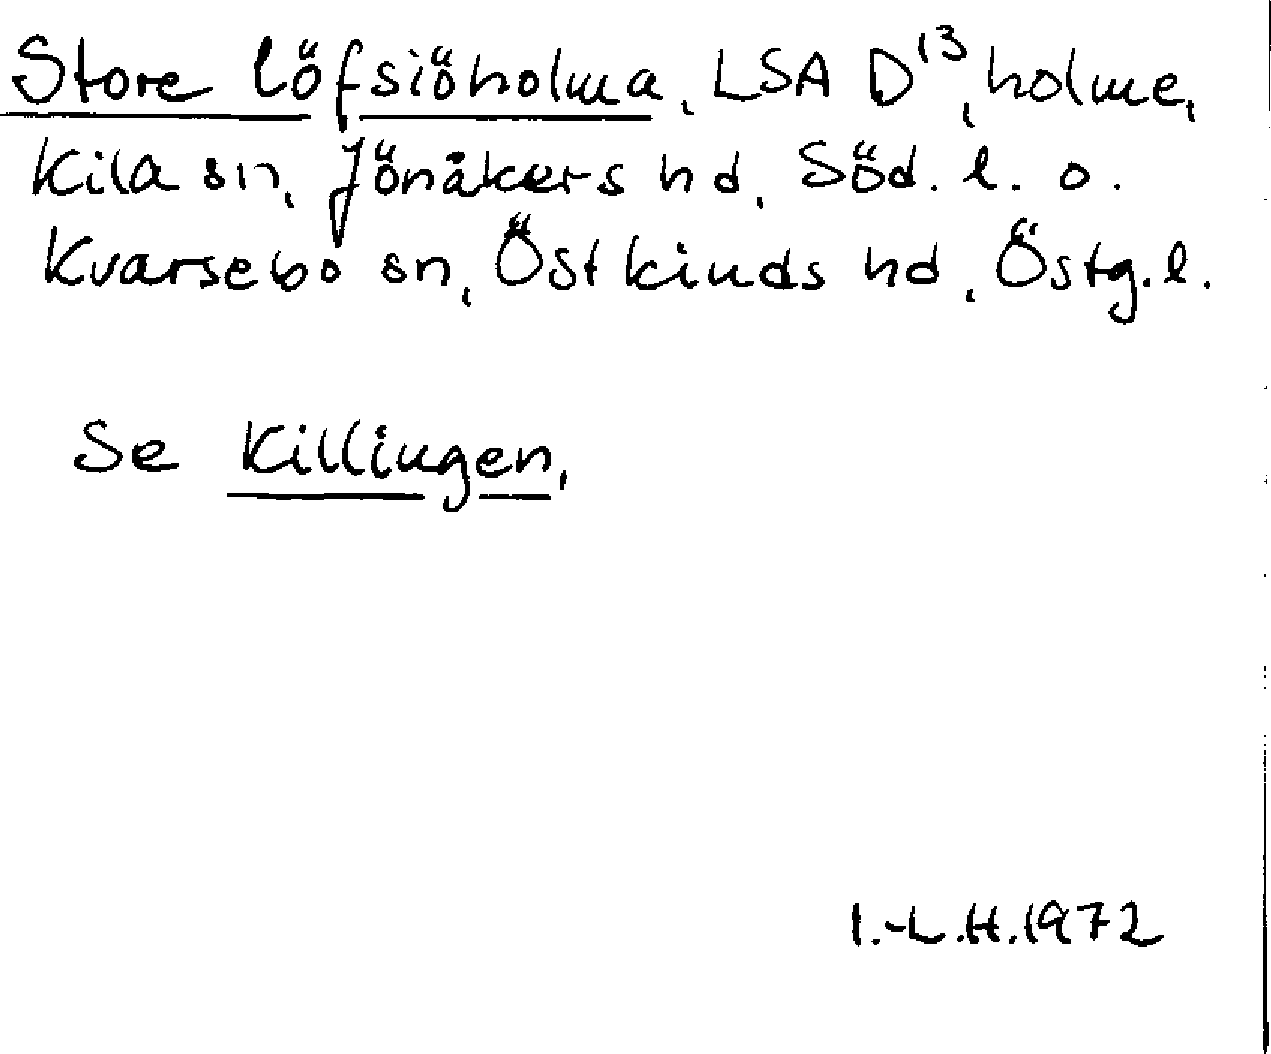 Store löfsiöholma, LSA D¹³, holme,
Kila sn, Jönåkers hd, Söd. l. o.
Kvarsebo sn, Östkinds hd, Östg. l.
Se Killingen.
I.-L.H. 1972